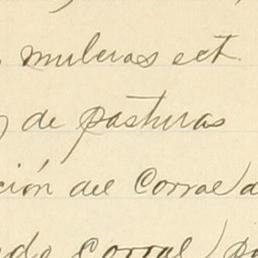 muleras ect.
y de pasturas
ción del Corral a
do corral, pa